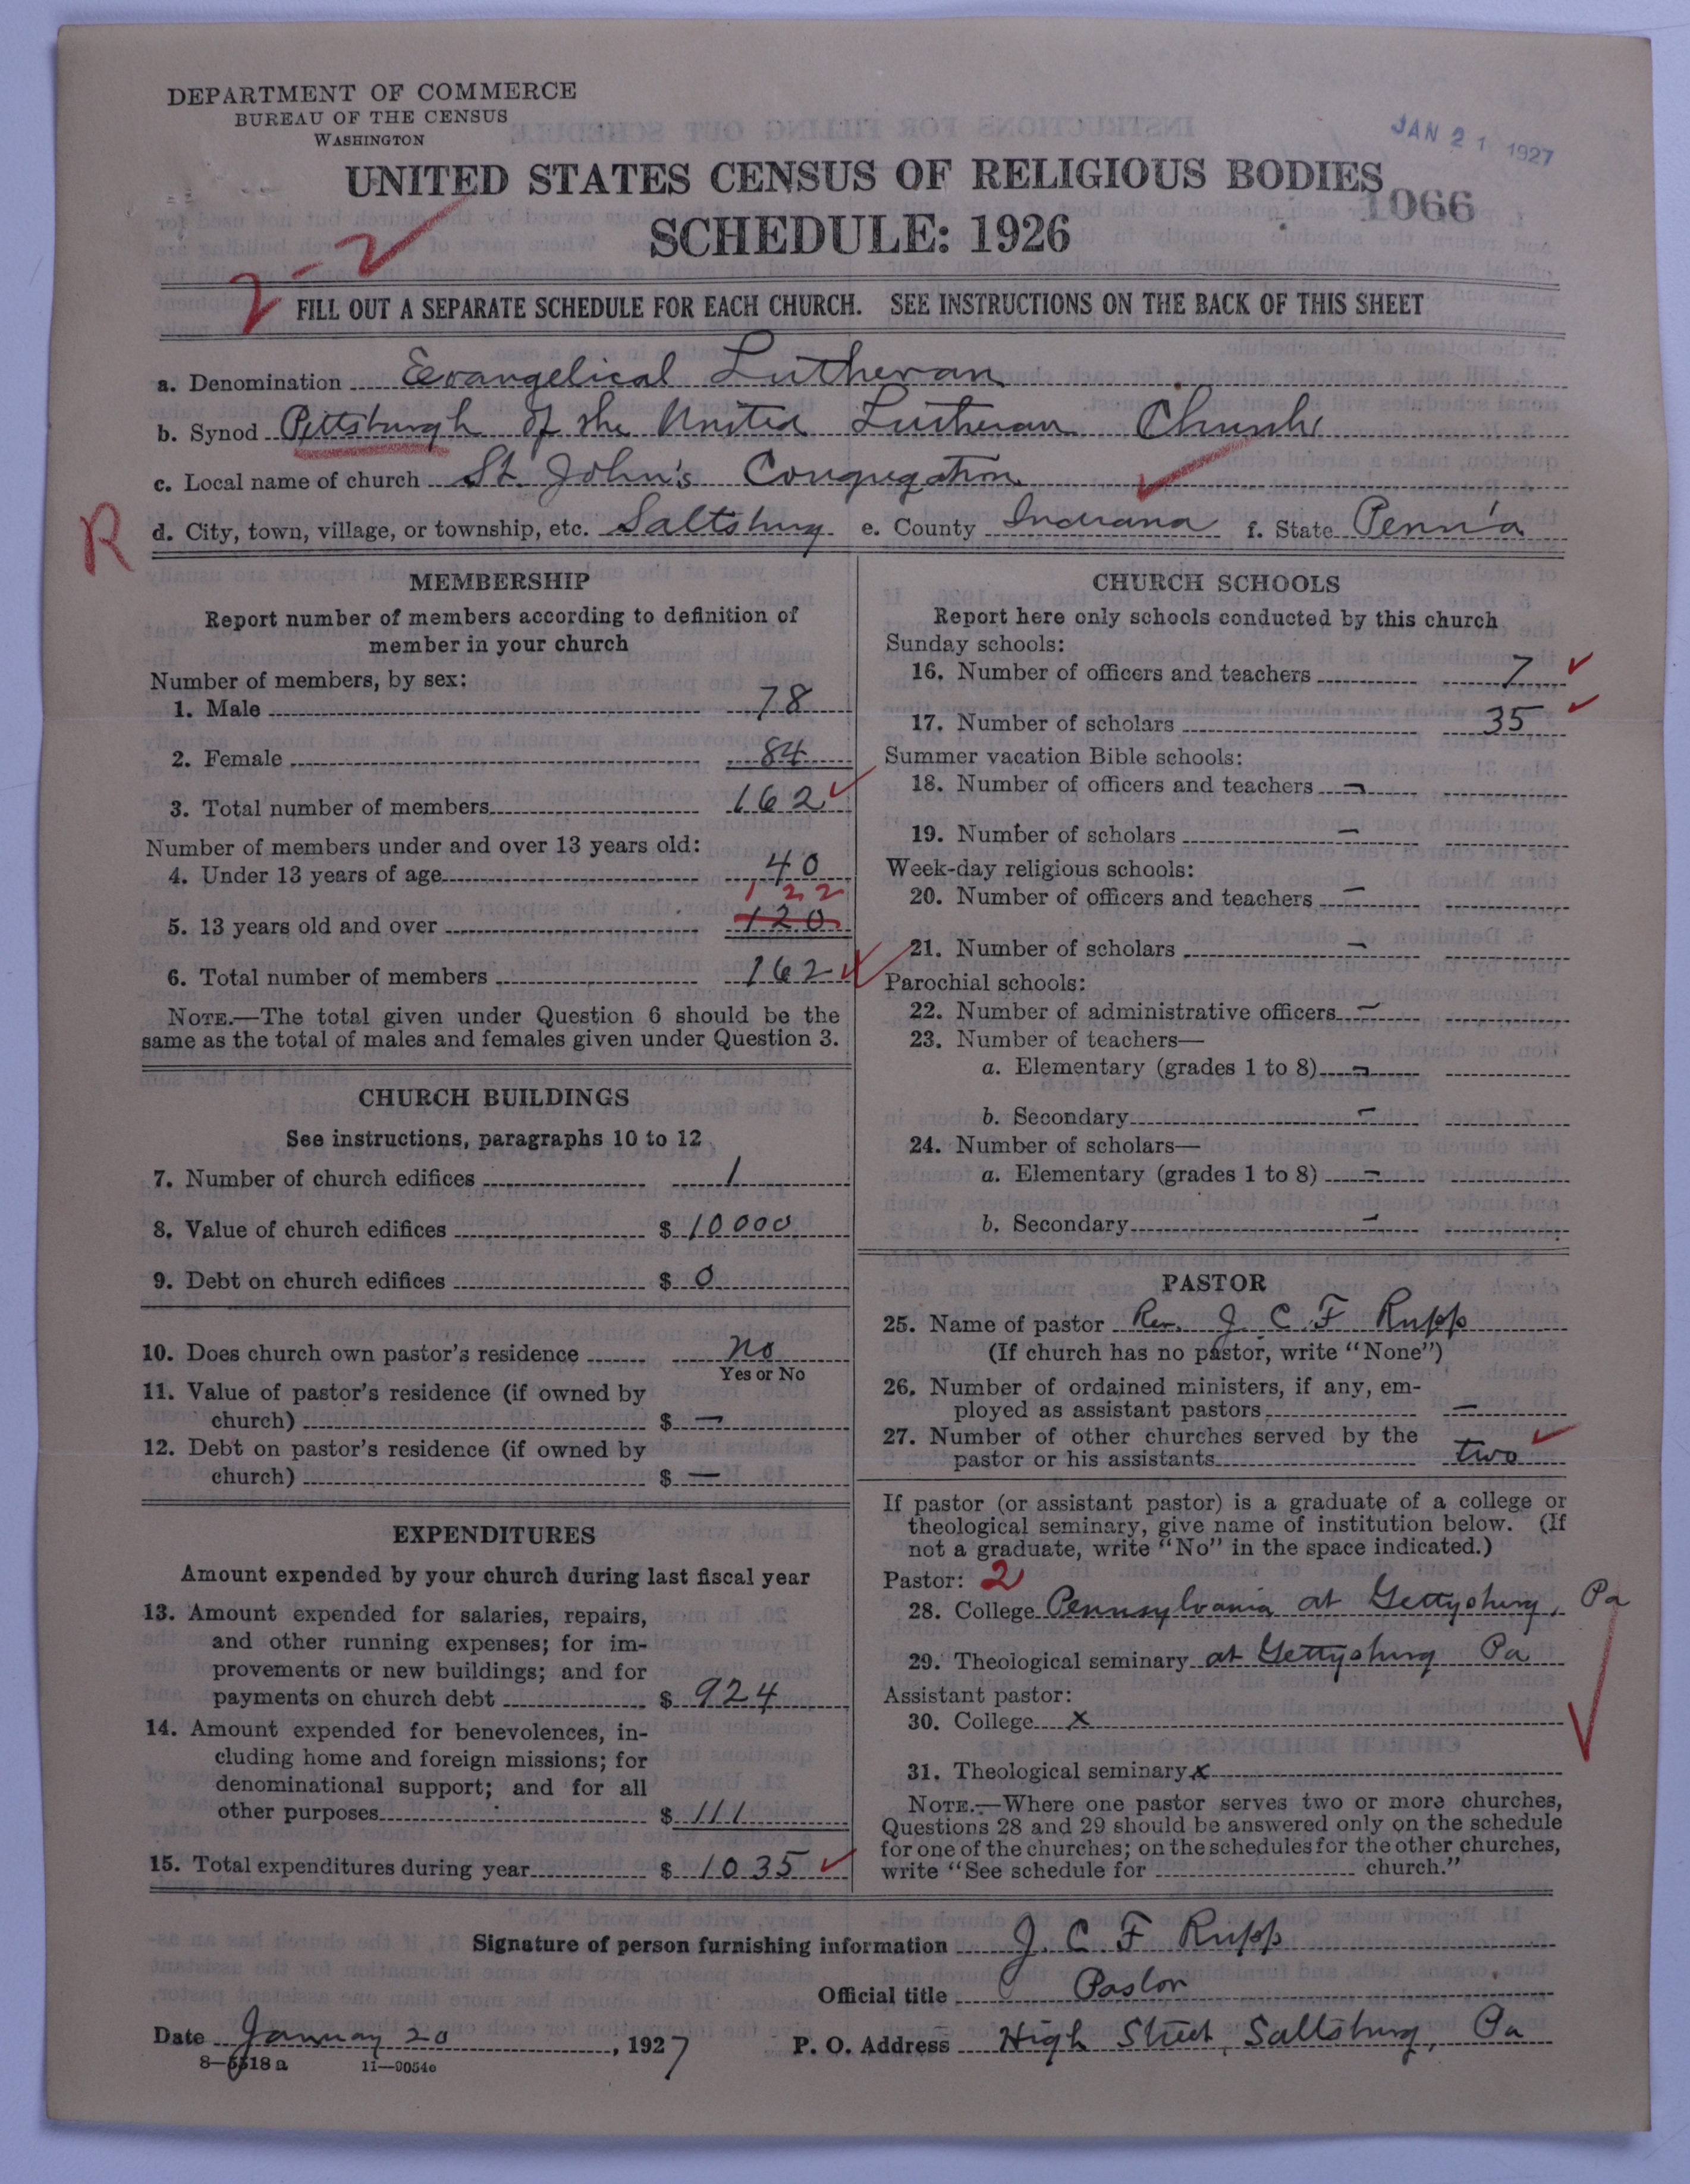 DEPARTMENT OF COMMERCE
BUREAU OF THE CENSUS
WASHINGTON
JAN 21 1927
UNITED STATES CENSUS OF RELIGIOUS BODIES
1066
SCHEDULE: 1926
2-2
FILL OUT A SEPARATE SCHEDULE FOR EACH CHURCH. SEE INSTRUCTIONS ON THE BACK OF THIS SHEET
a. Denomination Evangelical Lutheran
b. Synod Pittsburgh of the United Lutheran Church
c. Local name of church St. John's Congregation
R d. City, town, village, or township, etc. Saltsburg e. County Indiana f. State Penn'a
MEMBERSHIP
Report number of members according to definition of
member in your church
Number of members, by sex:
1. Male 78
2. Female 84
3. Total number of members 162
Number of members under and over 13 years old:
4. Under 13 years of age 40
122
5. 13 years old and over 120
6. Total number of members 162
NOTE.—The total given under Question 6 should be the
same as the total of males and females given under Question 3.
CHURCH BUILDINGS
See instructions, paragraphs 10 to 12
7. Number of church edifices 1
8. Value of church edifices $ 10000
9. Debt on church edifices $ 0
10. Does church own pastor's residence no
Yes or No
11. Value of pastor's residence (if owned by
church) $ —
12. Debt on pastor's residence (if owned by
church) $ —
EXPENDITURES
Amount expended by your church during last fiscal year
13. Amount expended for salaries, repairs,
and other running expenses; for im-
provements or new buildings; and for
payments on church debt $ 924
14. Amount expended for benevolences, in-
cluding home and foreign missions; for
denominational support; and for all
other purposes $ 111
15. Total expenditures during year $ 1035
CHURCH SCHOOLS
Report here only schools conducted by this church
Sunday schools:
16. Number of officers and teachers 7
17. Number of scholars 35
Summer vacation Bible schools:
18. Number of officers and teachers —
19. Number of scholars —
Week-day religious schools:
20. Number of officers and teachers —
21. Number of scholars —
Parochial schools:
22. Number of administrative officers —
23. Number of teachers—
a. Elementary (grades 1 to 8) —
b. Secondary —
24. Number of scholars—
a. Elementary (grades 1 to 8) —
b. Secondary —
PASTOR
25. Name of pastor Rev. J. C. F. Rupp
(If church has no pastor, write "None")
26. Number of ordained ministers, if any, em-
ployed as assistant pastors —
27. Number of other churches served by the
pastor or his assistants two
If pastor (or assistant pastor) is a graduate of a college or
theological seminary, give name of institution below. (If
not a graduate, write "No" in the space indicated.)
Pastor: 2
28. College Pennsylvania at Gettysburg, Pa
29. Theological seminary at Gettysburg Pa
Assistant pastor:
30. College x
31. Theological seminary x
NOTE.—Where one pastor serves two or more churches,
Questions 28 and 29 should be answered only on the schedule
for one of the churches; on the schedules for the other churches,
write "See schedule for church."
Signature of person furnishing information J. C. F. Rupp
Official title Pastor
Date January 20, 1927 P. O. Address High Street, Saltsburg, Pa
8—5518 a 11—9054e